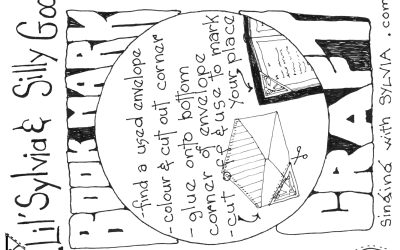 Lil' Sylvia & Silly Goo
BOOKMARK
-find a used envelope
-colour & cut out corner
-glue onto bottom
corner of envelope
-cut & use to mark
your place
CRAFT
Singing with SYLVIA.com